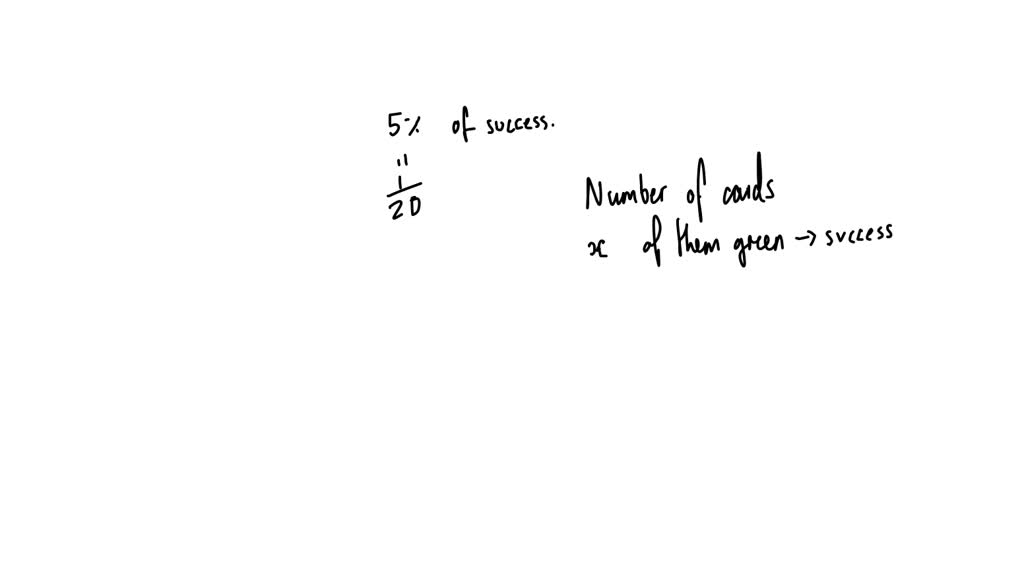 5% of success.
=
1
20
Number of cards
x of them green → success